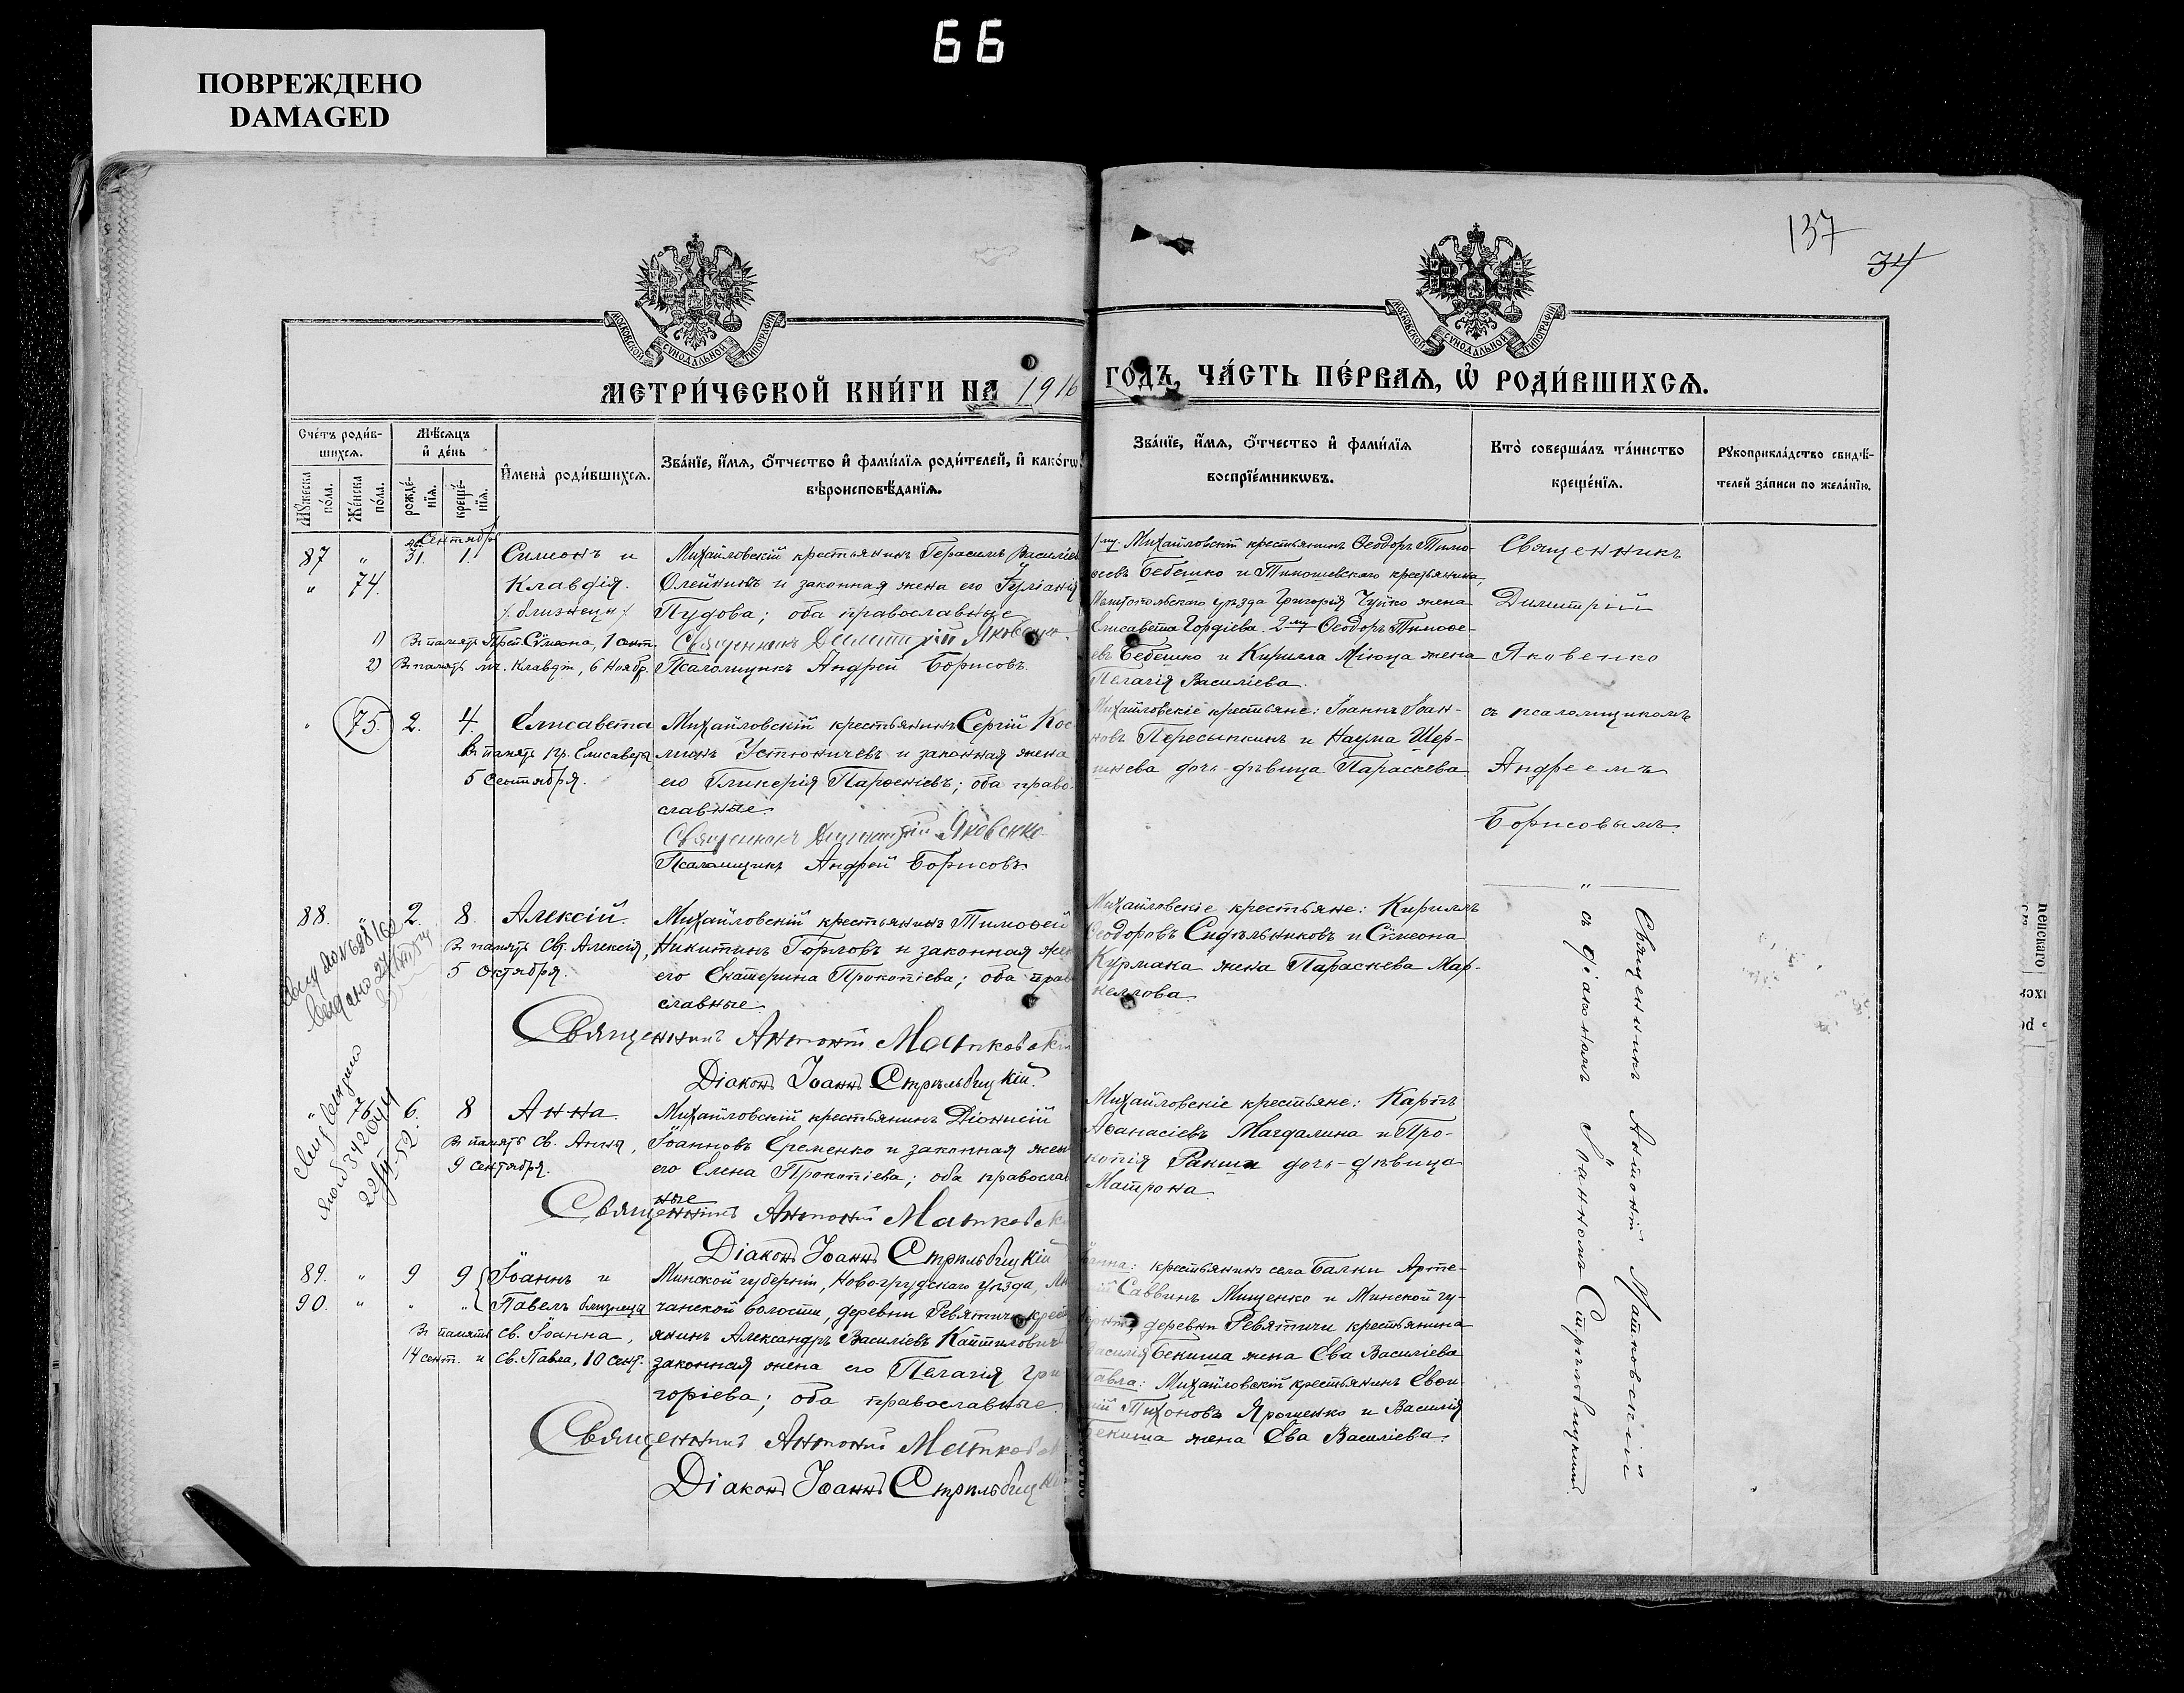 66
ПОВРЕЖДЕНО
DAMAGED
137
34
МОСКОВСКОЙ СѴНОДАЛЬНОЙ ТИПОГРАФІИ
МОСКОВСКОЙ СѴНОДАЛЬНОЙ ТИПОГРАФІИ
МЕТРИ́ЧЕСКОЙ КНИ́ГИ НА 1916 ГОДЪ, ЧА́СТЬ ПЕ́РВАЯ, Ѡ РОДИ́ВШИХСЯ.
Сче́тъ роди́в-
шихся.
Мѹ́жеска по́ла.
Же́нска по́ла.
Мѣ́сяцъ
и де́нь
рожде́-
нїя.
креще́-
нїя.
Имена̀ роди́вшихся.
Зва́нїе, и́мя, о́тчество и фами́лїя роди́телей, и како́гѡ
вѣроисповѣ́данїя.
Зва́нїе, и́мя, о́тчество и фами́лїя
воспрїе́мникѡвъ.
Кто̀ соверша́лъ та́инство
креще́нїя.
Рѹкоприкла́дство свидѣ́-
телей за́писи по жела́нїю.
Сентябрь
87 " 31. 1. Симеонъ и
" 74. Клавдія.
/близнецы/
1) Въ память Прп. Сѵмеона, 1 сент.
2) Въ память мц. Клавдіи, 6 Ноябр.
Михайловскій крестьянинъ Герасимъ Василіев
Олейникъ и законная жена его Іуліанія
Пудова; оба православные
Священникъ Димитрій Яковенко.
Псаломщикъ Андрей Борисовъ.
1му Михайловскій крестьянинъ Ѳеодоръ Тимо-
ѳеевъ Бебешко и Тимошевскаго крестьянина,
Мелитопольскаго уѣзда Григорія Чуйко жена
Елисавета Гордіева. 2му Ѳеодоръ Тимоѳе-
евъ Бебешко и Кирилла Міюца жена
Пелагія Василіева.
Священникъ
Димитрій
Яковенко
съ псаломщикомъ
Андреемъ
Борисовымъ.
" 75. 2. 4. Елисавета
Въ память пр. Елисаветы
5 Сентября.
Михайловскій крестьянинъ Сергій Кос
минъ Устюничевъ и законная жена
его Гликерія Парѳеніевъ; оба право-
славные.
Священникъ Димитрій Яковенко
Псаломщикъ Андрей Борисовъ.
Михайловскіе крестьяне: Іоаннъ Іоан-
новъ Пересыпкинъ и Наума Шер-
шнева дочь-дѣвица Параскева
88. " 2. 8. Алексій.
Въ память Свт. Алексія,
5 Октября.
Михайловскій крестьянинъ Тимоѳей
Никитинъ Горловъ и законная жен
его Екатерина Прокопіева; оба прав
славные.
Священникъ Антоній Матковскі
Діаконъ Іоаннъ Стрѣльбицкій.
Михайловскіе крестьяне: Кириллъ
Ѳеодоровъ Сидѣльниковъ и Сѵмеона
Курмака жена Параскева Мар-
келлова.
"
Священникъ Антоній Матковскій
съ діакономъ Іоанномъ Стрѣльбицкимъ
" 76 6. 8 Анна.
Въ память св. Анны,
9 сентября.
Михайловскій крестьянинъ Діонисій
Іоанновъ Еременко и законная жен
его Елена Прокопіева; оба правосла
вные
Священникъ Антоній Матковск
Діаконъ Іоаннъ Стрѣльбицкій
Михайловскіе крестьяне: Карпъ
Аѳанасіевъ Магдалина и Про-
копія Ракши дочь-дѣвица
Матрона.
89. " 9 9 Іоаннъ и
90. " " " Павелъ близнецы
Въ память св. Іоанна,
14 сент. и св. Павла, 10 сент.
Минской губерніи, Новогрудскаго уѣзда,
чанской волости, деревни Ревятичи крест
янинъ Александръ Василіевъ Кайтиловичъ
законная жена его Пелагія Гри
горіева; оба православные.
Священникъ Антоній Матковс
Діаконъ Іоаннъ Стрѣльбицкі
Іоанна: крестьянинъ села Балки Арте-
мій Саввинъ Мищенко и Минской гу-
берніи, деревни Ревятичи крестьянина
Василія Бекиша жена Ева Василіева
Павла: Михайловскій крестьянинъ Евѳи-
мій Тихоновъ Ярошенко и Василія
Бекиша жена Ева Василіева.